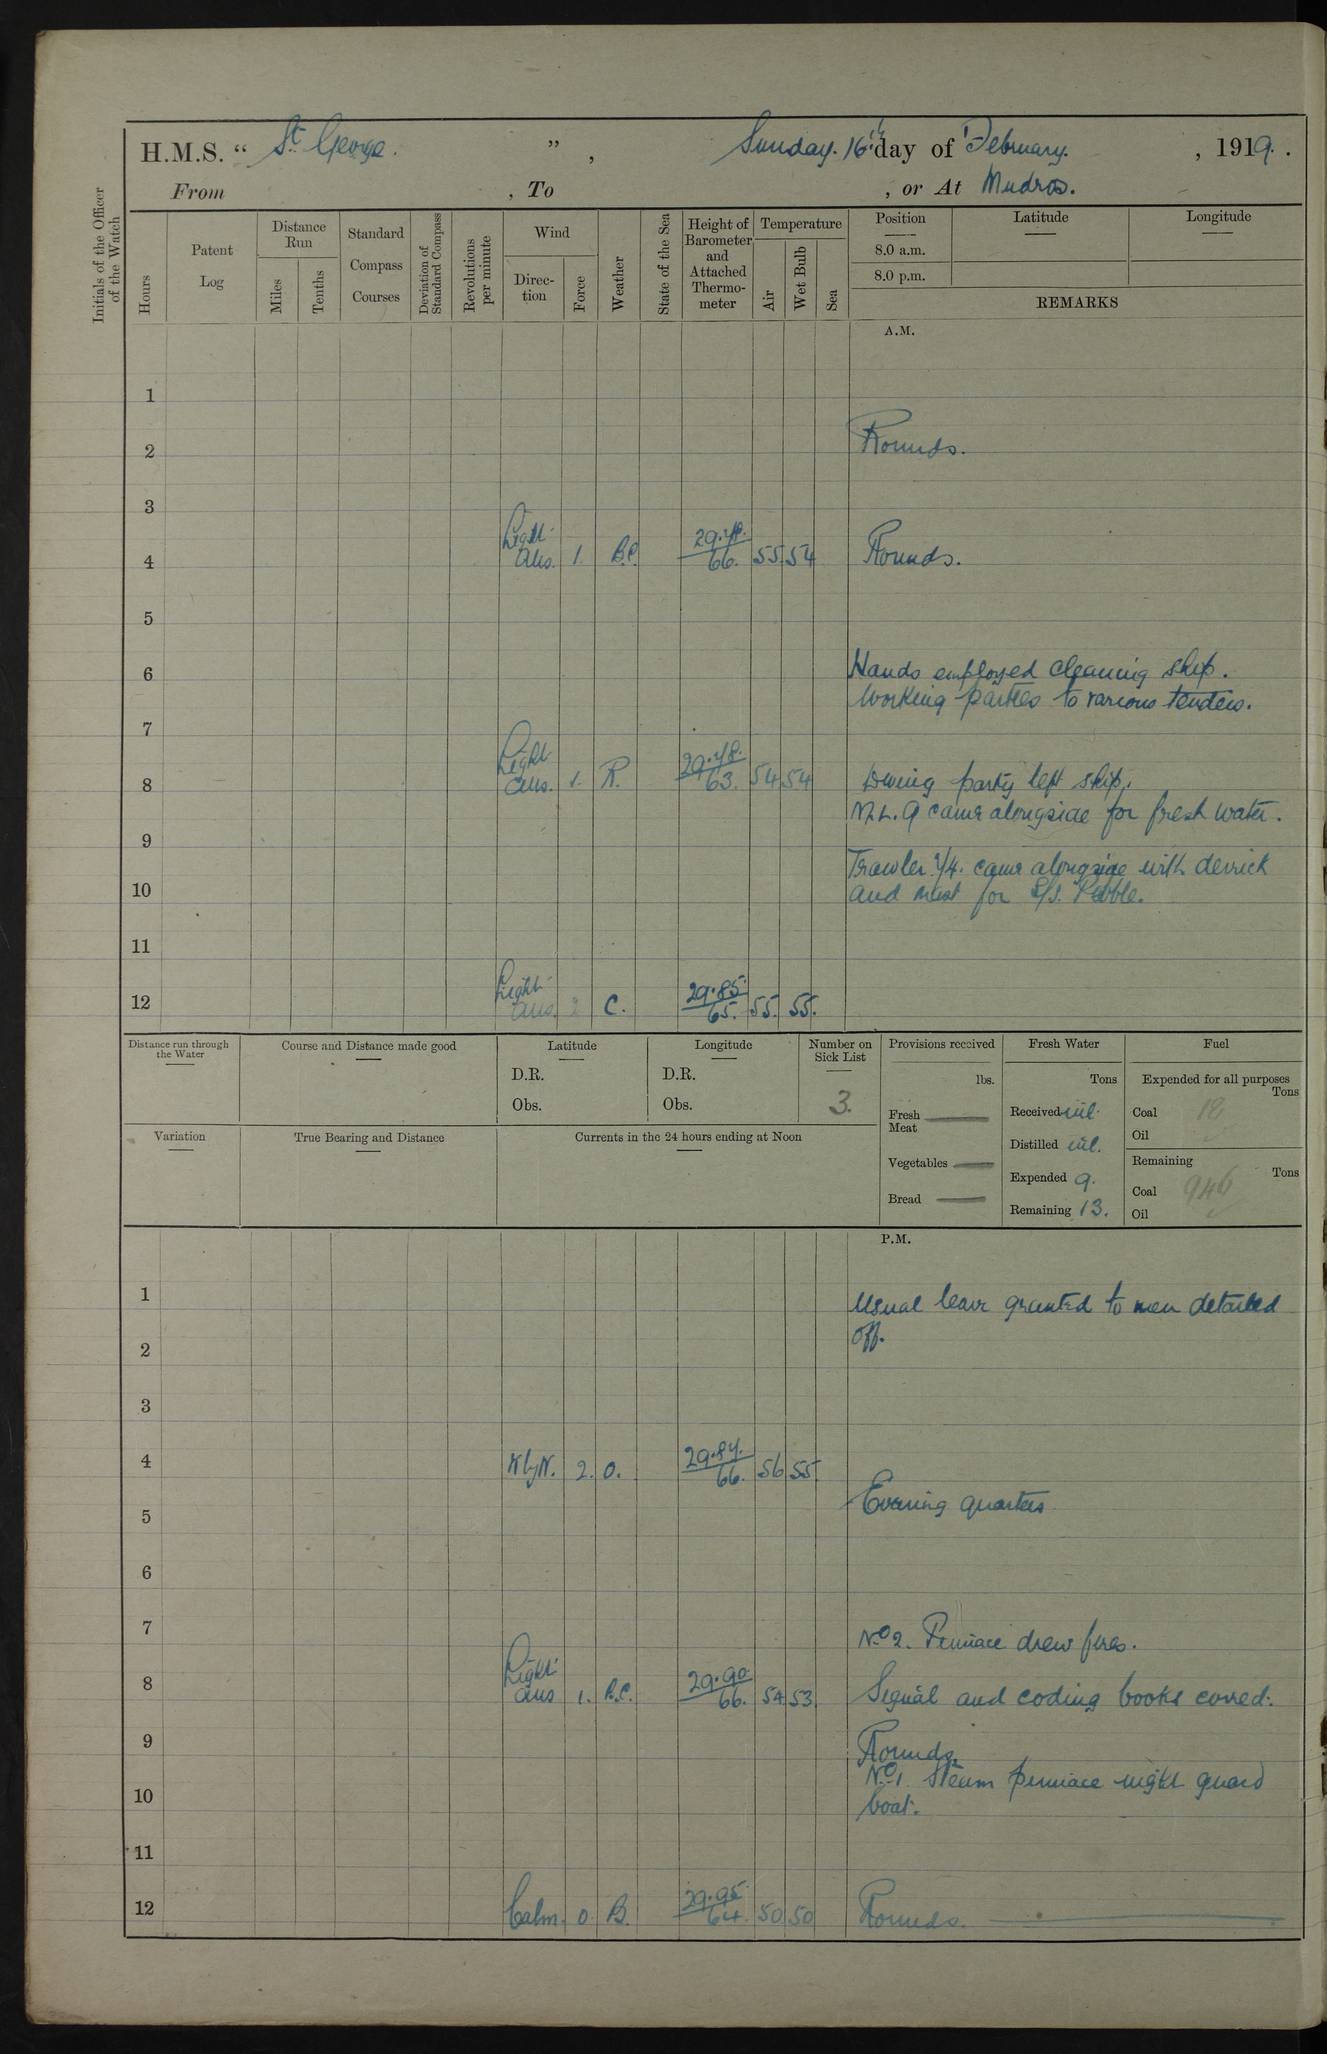 H.M.S. “ St. George. ” , Sunday. 16th day of February. , 1919. .
From , To , or At Mudros.
Initials of the Officer of the Watch
Hours
Patent Log
Distance Run
Miles
Tenths
Standard Compass Courses
Deviation of Standard Compass
Revolutions per minute
Wind
Direc- tion
Force
Weather
State of the Sea
Height of Barometer and Attached Thermo- meter
Temperature
Air
Wet Bulb
Sea
Position
Latitude
Longitude
8.0 a.m.
8.0 p.m.
REMARKS
A.M.
1
2 Rounds.
3
4 Light Airs. 1. B.C. 66. 55. 54 Rounds.
5
6 Hands employed cleaning ship.
Working parties to various tenders.
7
8 Light airs. 1. R. 29.78. 63. 54 54 Diving party left ship.
M.L. 9 came alongside for fresh water.
9
Trawler came alongside with derrick
10 and mast for S/S. Pebble.
11
12 Light airs. 2 C. 29.85. 65. 55. 55.
Distance run through the Water
Course and Distance made good
Latitude
D.R.
Obs.
Longitude
D.R.
Obs.
Number on Sick List
3.
Provisions received
lbs.
Fresh Meat
Vegetables
Bread
Fresh Water
Tons
Received nil.
Distilled nil.
Expended 9.
Remaining 13.
Fuel
Expended for all purposes
Tons
Coal 18
Oil
Remaining
Tons
Coal 946
Oil
Variation
True Bearing and Distance
Currents in the 24 hours ending at Noon
P.M.
1 Usual leave granted to men detailed
2 off.
3
4 2. O. 29.84. 66. 56 55
Evening quarters
5
6
7 No 2. Pinnace drew fires.
8 Light airs 1. B.C. 29.90 66. 54 53. Signal and coding books corred.
9 Rounds.
No 1 Steam pinnace night guard
10 boat.
11
12 Calm. 0 B. 29.95 64. 50 50 Rounds.